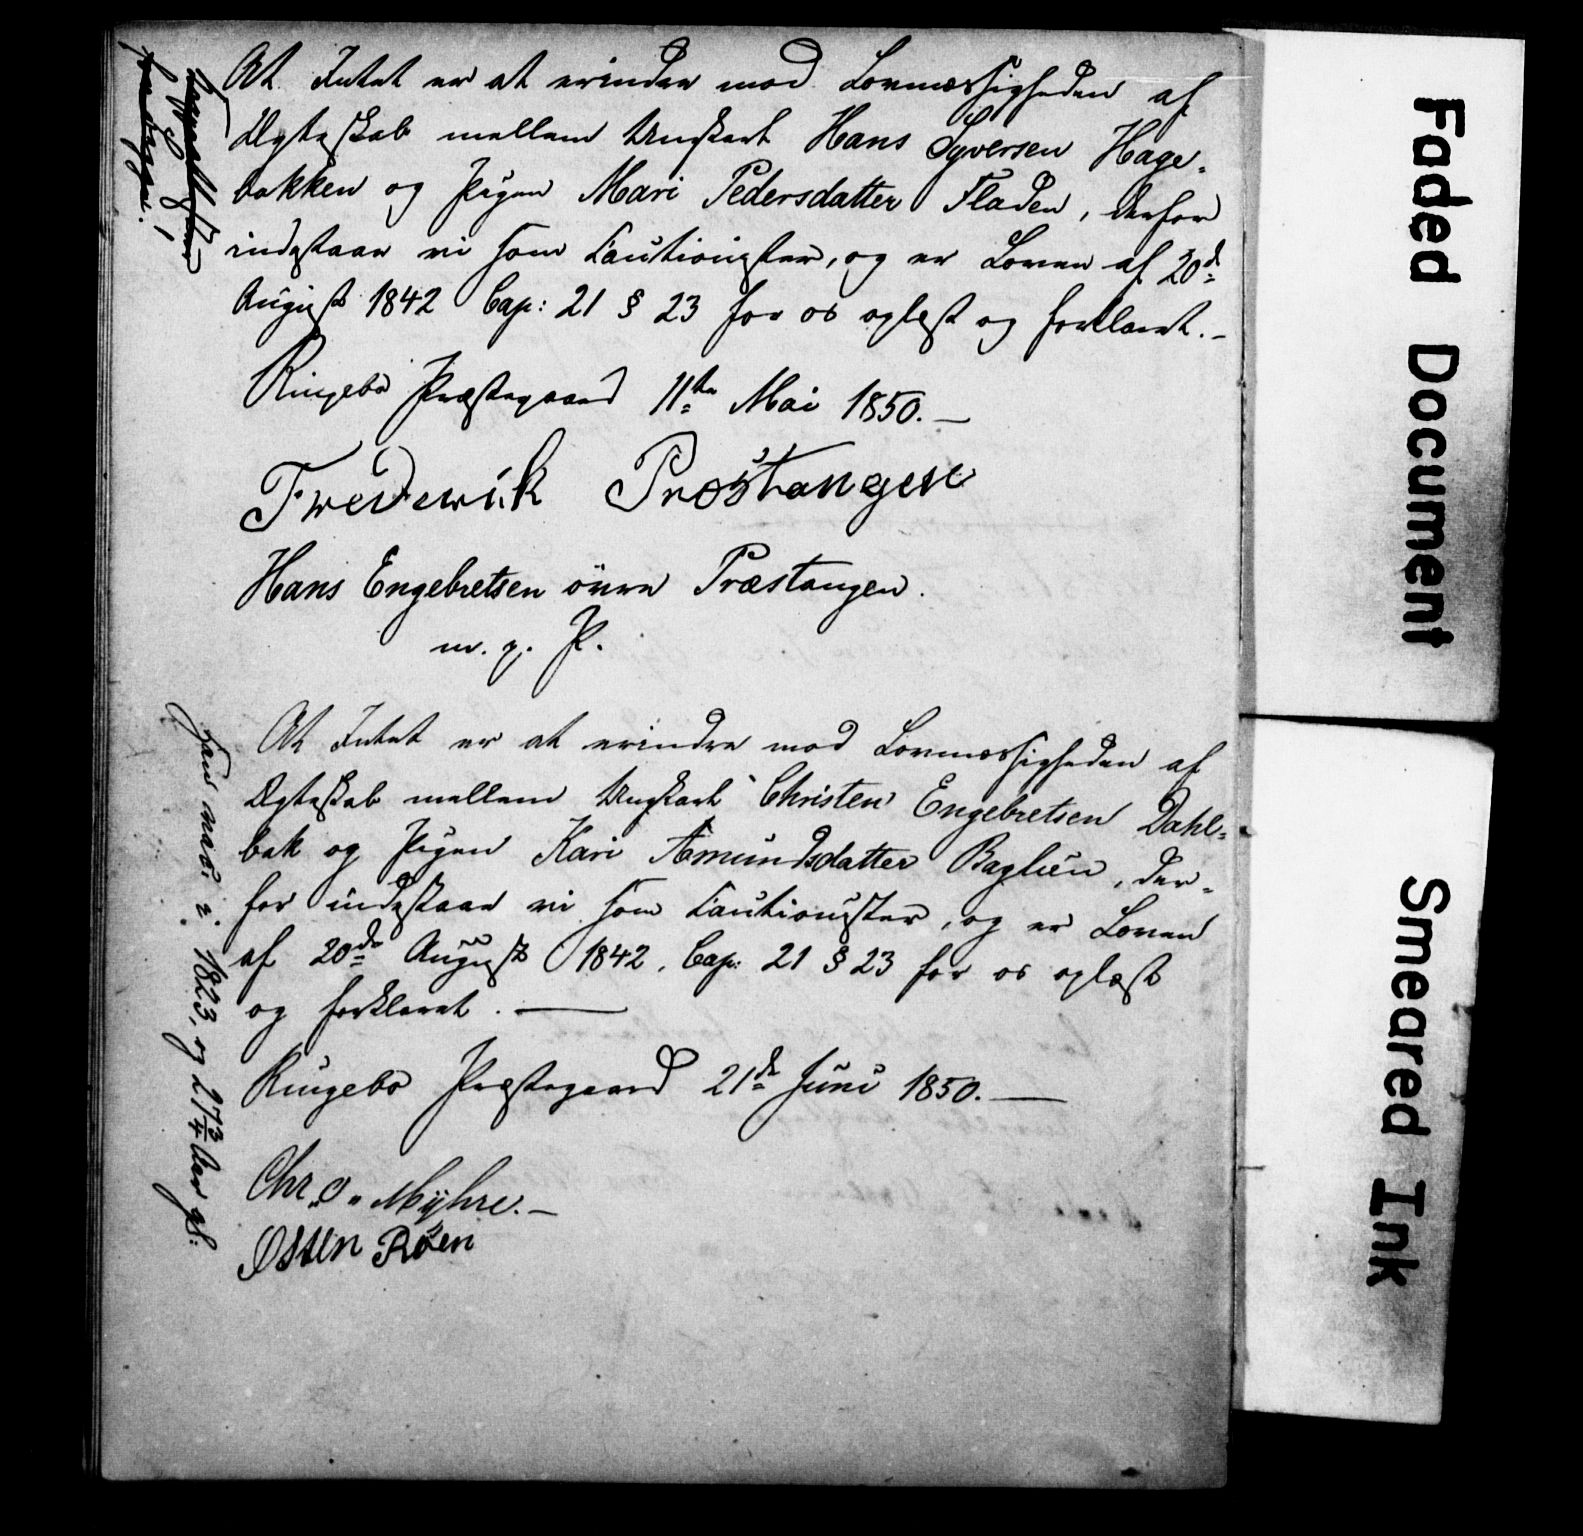 At Intet er at erindre mod Lovmæssigheden af
Ægteskab mellem Ungkarl Hans Syversen Hage-
bakken og Pigen Mari Pedersdatter Fladen, derfor
indestaae vi som Cautionister, og er Loven af 20d
August 1842 Cap: 21 § 23 for os oplæst og forklaret.-
Ringebo Præstegaard 11te Mai 1850.-
Frederik Præstangen
Hans Engebretsen övre Præstangen.
m. p. P.
At Intet er at erindre mod Lovmæssigheden af
Ægteskab mellem Ungkarl Christen Engebretsen Dahl-
bak og Pigen Kari Amundsdatter Baglien, der-
for indestaae vi som Cautionister, og er Loven
af 20de August 1842. Cap: 21 § 23 for os oplæst
og forklaret.-
Ringebo Præstegaard 21de Juni 1850.-
Chr. O. Myhre.-
Østen Röen
1823, og 27 3/4 Aar gl:
Faded Document
Smeared Ink